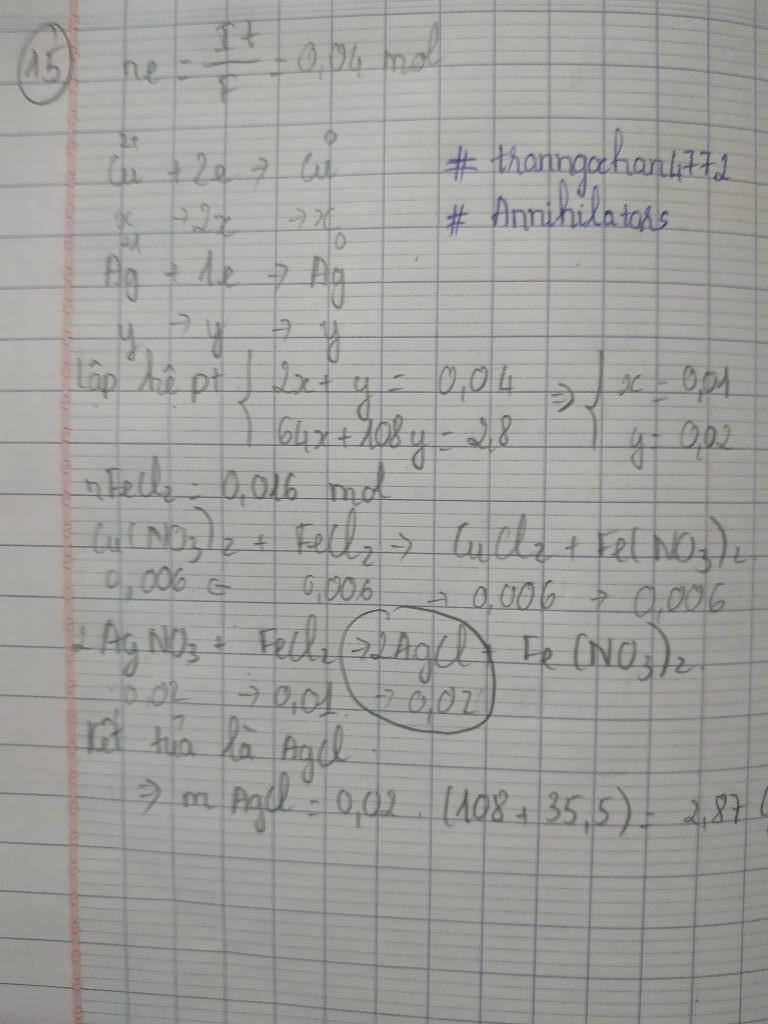 15 ne = It/F = 0,04 mol
Cu²⁺ + 2e → Cu⁰ # thanngochan4772
x → 2x → x # Annihilators
Ag⁺¹ + 1e → Ag⁰
y → y → y
Lập hệ pt { 2x + y = 0,04 ⇒ { x = 0,01
64x + 108y = 2,8 y = 0,02
nFeCl₂ = 0,016 mol
Cu(NO₃)₂ + FeCl₂ → CuCl₂ + Fe(NO₃)₂
0,006 ← 0,006 → 0,006 → 0,006
2AgNO₃ + FeCl₂ → 2AgCl + Fe(NO₃)₂
0,02 → 0,01 → 0,02
Kết tủa là AgCl
⇒ m AgCl = 0,02 . (108 + 35,5) = 2,87 (